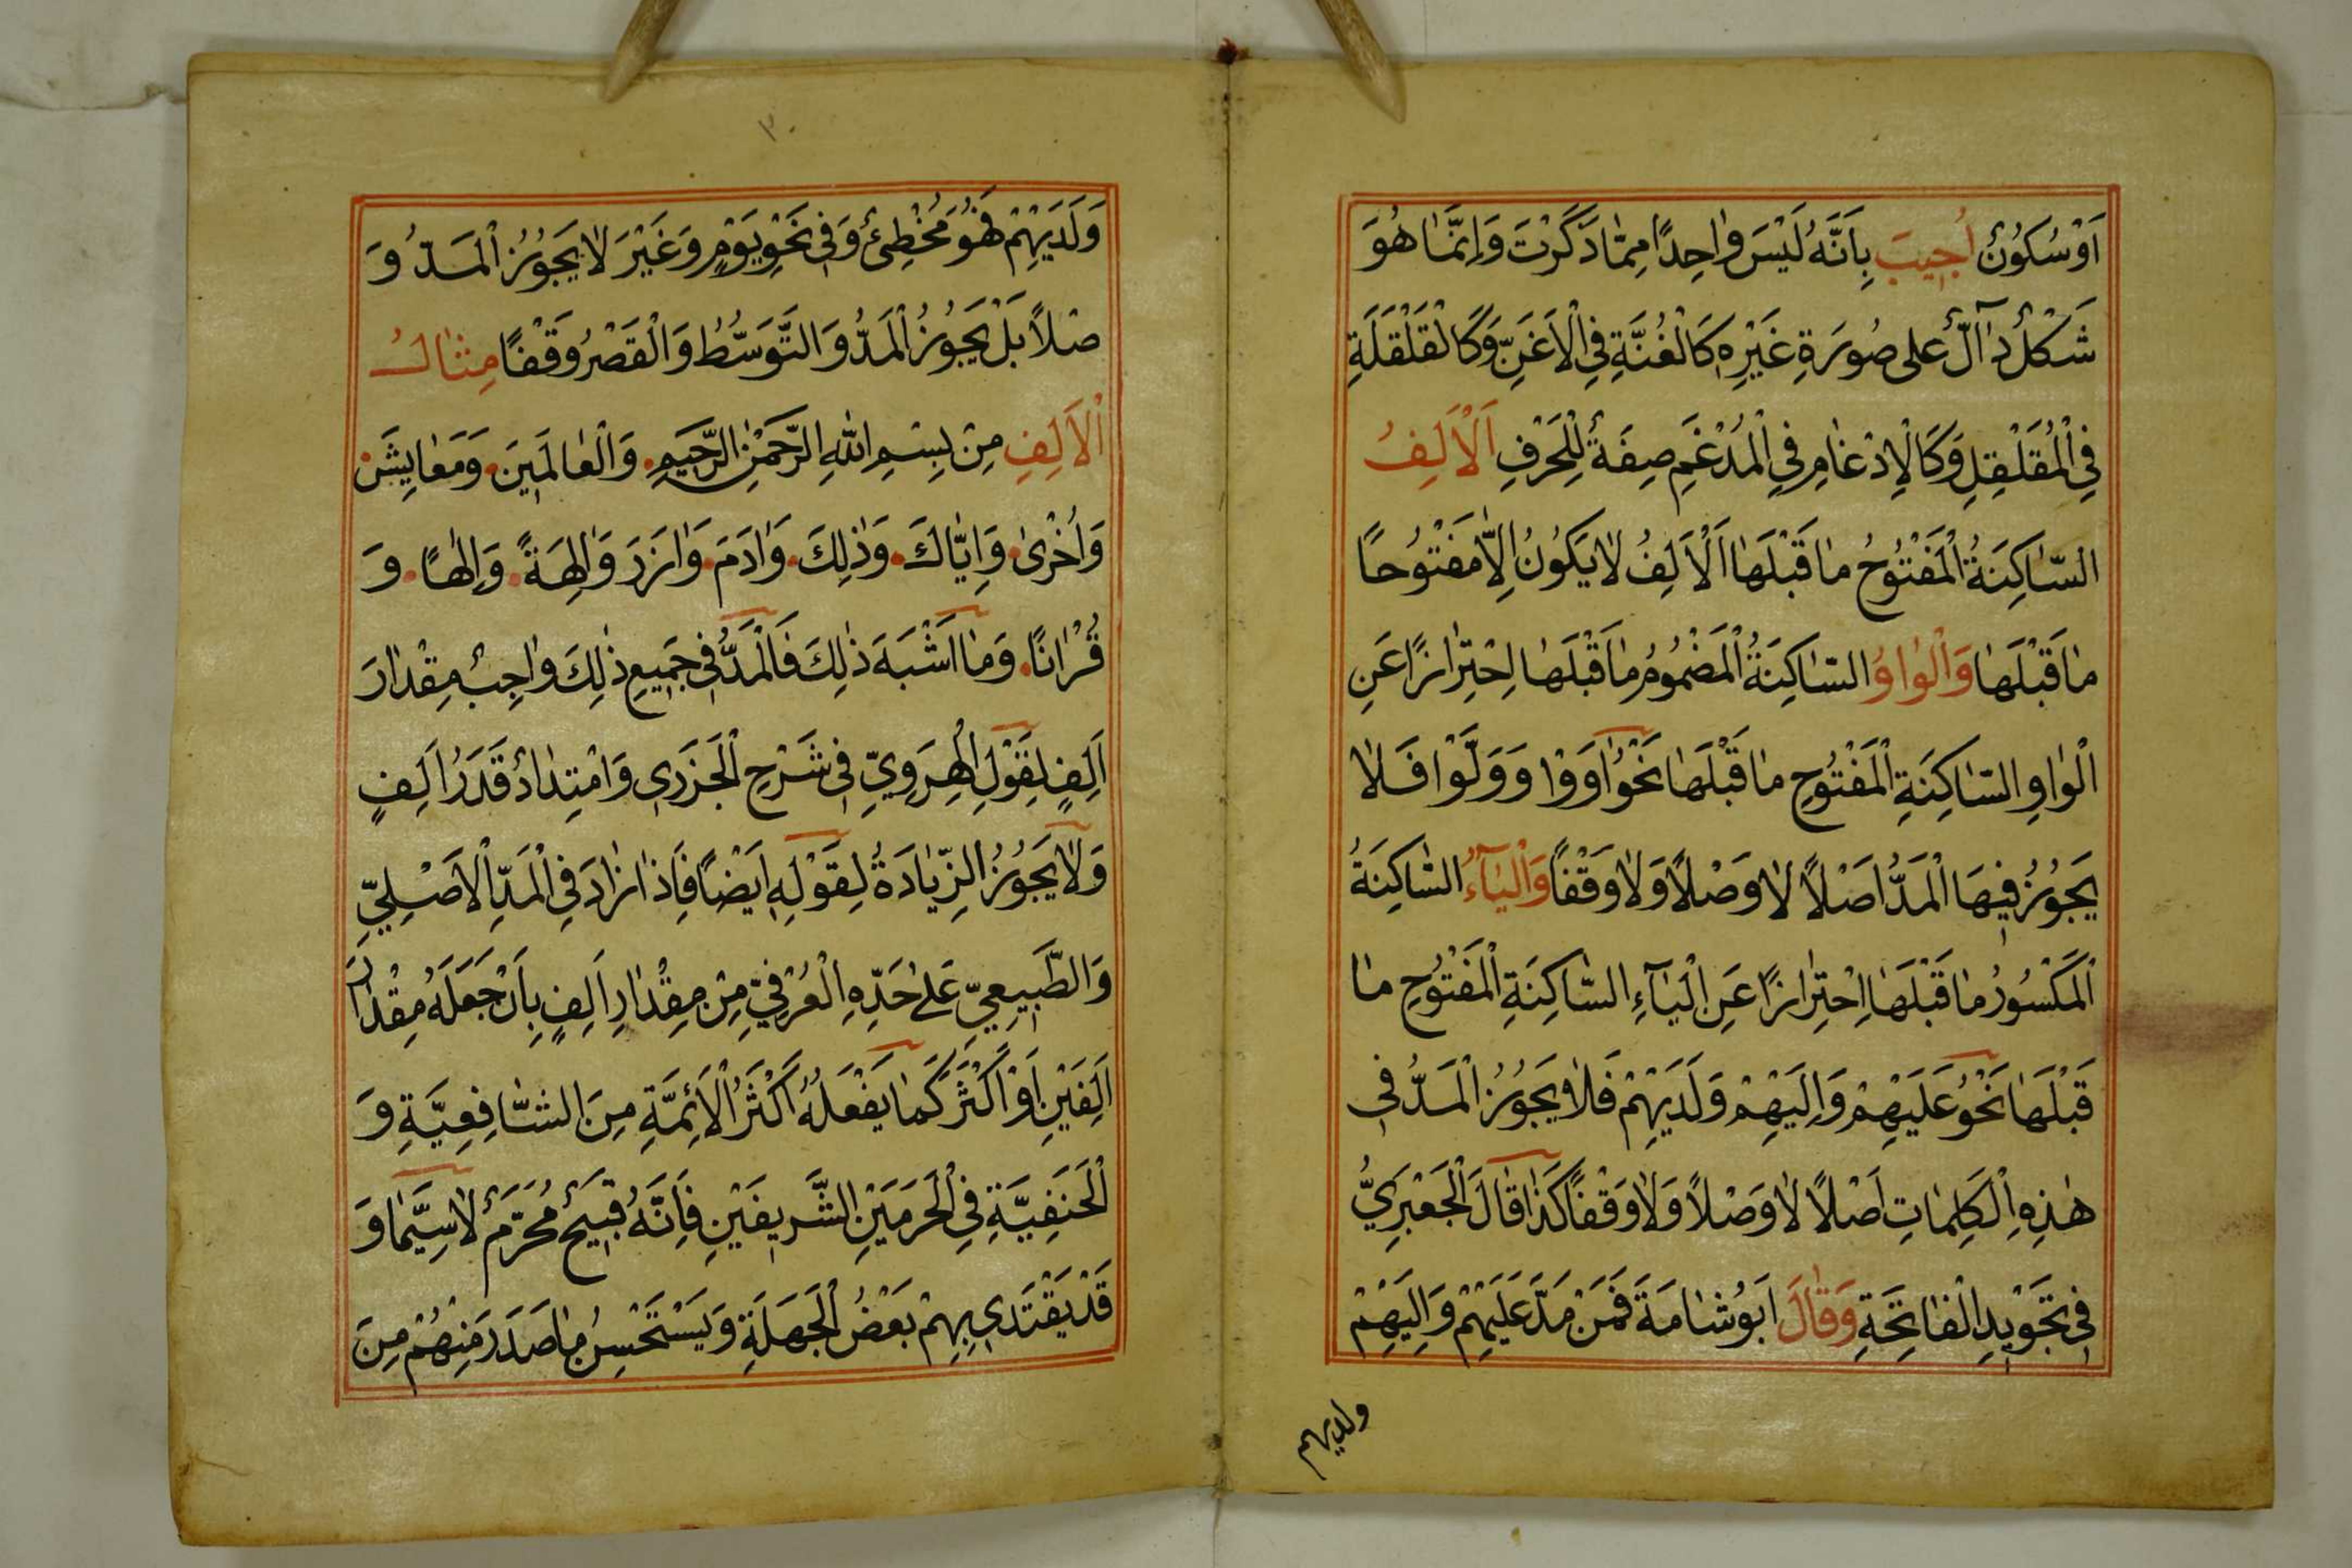 اَوْ سُكُونٌ اُجِيبَ بِاَنَّهُ لَيْسَ وٰاحِدًا مِمّٰا ذَكَرْتَ وَاِنَّمٰا هُوَ
شَكْلٌ دٰآلٌّ على صُورَةِ غَيْرِهِ كَالْغُنَّةِ فِي الْاَغَنِّ وَكَالْقَلْقَلَةِ
فِي الْمُقَلْقِلِ وَكَالْاِدْغٰامِ فِي الْمُدْغَمِ صِفَةٌ لِلْحَرْفِ اَلْاَلِفُ
السّٰاكِنَةُ الْمَفْتُوحُ مٰا قَبْلَهٰا اَلْاَلِفُ لٰا يَكُونُ اِلّٰا مَفْتُوحًا
مٰا قَبْلَهٰا وَالْوٰاوُ السّٰاكِنَةُ الْمَضْمُومُ مٰا قَبْلَهٰا اِحْتِرٰازًا عَنِ
الْوٰاوِ السّٰاكِنَةِ الْمَفْتُوحِ مٰا قَبْلَهٰا نَحْوُ اٰوَوْا وَوَلَّوْا فَلٰا
يَجُوزُ فِيهَا الْمَدُّ اَصْلًا لٰا وَصْلًا وَلٰا وَقْفًا وَالْيٰآءُ السّٰاكِنَةُ
الْمَكْسُورُ مٰا قَبْلَهٰا اِحْتِرٰازًا عَنِ الْيٰآءِ السّٰاكِنَةِ الْمَفْتُوحِ مٰا
قَبْلَهٰا نَحْوُ عَلَيْهِمْ وَاِلَيْهِمْ وَلَدَيْهِمْ فَلٰا يَجُوزُ الْمَدُّ فِي
هٰذِهِ الْكَلِمٰاتِ اَصْلًا لٰا وَصْلًا وَلٰا وَقْفًا كَذٰا قٰالَ الْجَعْبَرِيُّ
فِي تَجْوِيدِ الْفٰاتِحَةِ وَقٰالَ اَبُو شٰامَةَ فَمَنْ مَدَّ عَلَيْهِمْ وَاِلَيْهِمْ
ولديهم
٣٠
وَلَدَيْهِمْ فَهُوَ مُخْطِئٌ وَفِي نَحْوِ يَوْمٍ وَغَيْرَ لٰا يَجُوزُ الْمَدُّ وَ
صْلًا بَلْ يَجُوزُ الْمَدُّ وَالتَّوَسُّطُ وَالْقَصْرُ وَقْفًا مِثٰالُ
الْاَلِفِ مِنْ بِسْمِ اللّٰهِ الرَّحْمٰنِ الرَّحِيمِ وَالْعٰالَمِينَ وَمَعٰايِشَ
وَاُخْرٰى وَاِيّٰاكَ وَذٰلِكَ وَاٰدَمَ وَاٰزَرَ وَاٰلِهَةً وَاِلٰهًا وَ
قُرْاٰنًا وَمٰا اَشْبَهَ ذٰلِكَ فَالْمَدُّ فِي جَمِيعِ ذٰلِكَ وٰاجِبٌ مِقْدٰارَ
اَلِفٍ لِقَوْلِ الْهِرَوِيِّ فِي شَرْحِ الْجَزَرِي وَامْتِدٰادٌ قَدَرُ اَلِفٍ
وَلٰا يَجُوزُ الزِّيٰادَةُ لِقَوْلِهِ اَيْضًا فَاِذٰا زٰادَ فِي الْمَدِّ الْاَصْلِيِّ
وَالطَّبِيعِيِّ عَلٰى حَدِّهِ الْعُرْفِيِّ مِنْ مِقْدٰارِ اَلِفٍ بِاَنْ جَعَلَهُ مِقْدٰارَ
اَلِفَيْنِ اَوْ اَكْثَرَ كَمٰا يَفْعَلُهُ اَكْثَرُ الْاَئِمَّةِ مِنَ الشّٰافِعِيَّةِ وَ
الْحَنَفِيَّةِ فِي الْحَرَمَيْنِ الشَّرِيفَيْنِ فَاِنَّهُ قَبِيحٌ مُحَرَّمٌ لٰا سِيَّمٰا وَ
قَدْ يَقْتَدِي بِهِمْ بَعْضُ الْجَهَلَةِ وَيَسْتَحْسِنُ مٰا صَدَرَ مِنْهُمْ مِنَ